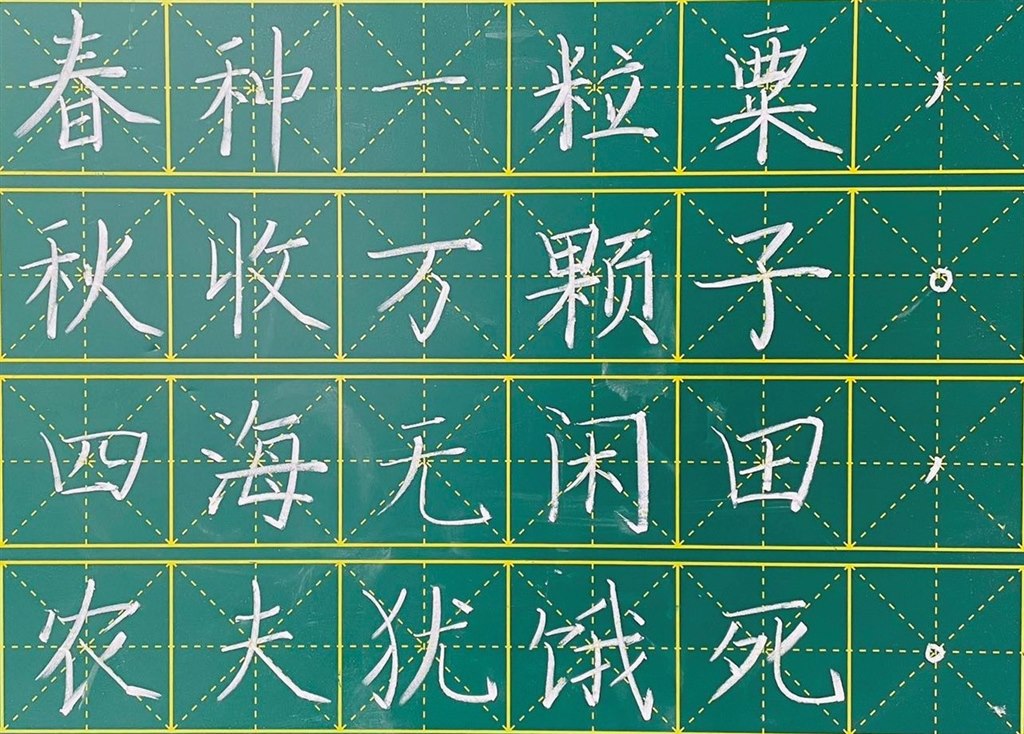 春种一粒粟，
秋收万颗子。
四海无闲田，
农夫犹饿死。